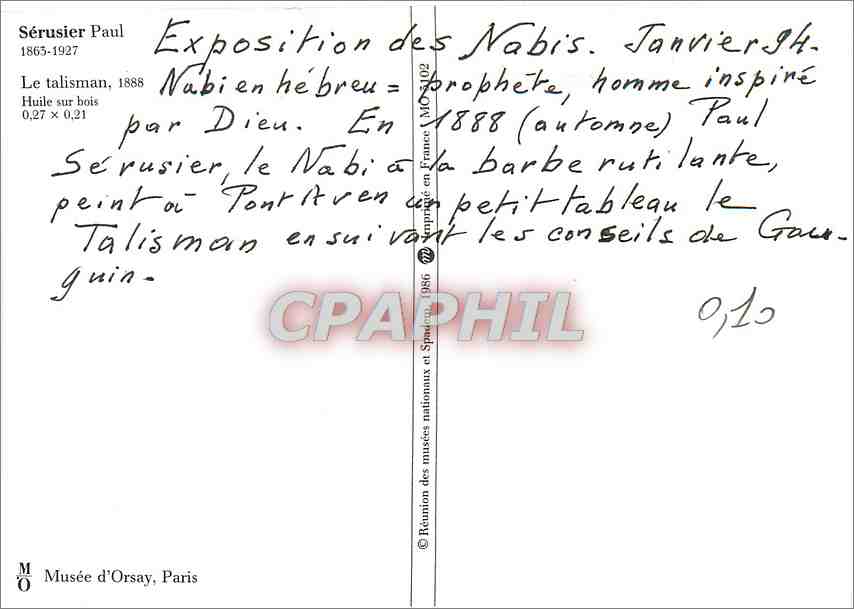 Sérusier Paul
1863-1927
Le talisman, 1888
Huile sur bois
0,27 × 0,21
Exposition des Nabis. Janvier 94.
Nabi en hébreu = prophète, homme inspiré
par Dieu. En 1888 (automne) Paul
Sérusier, le Nabi à la barbe rutilante,
peint à Pont Aven un petit tableau le
Talisman en suivant les conseils de Gau-
guin.
0,10
CPAPHIL
© Réunion des musées nationaux et Spadem, 1986 Imprimé en France MO 5102
MO Musée d'Orsay, Paris